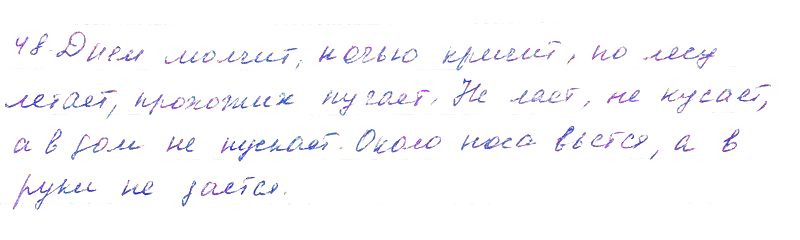 48. Днем молчит, ночью кричит, по лесу
летает, прохожих пугает. Не лает, не кусает,
а в дом не пускает. Около носа вьется, а в
руки не дается.